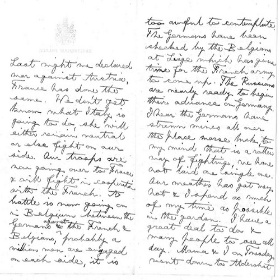 Last night we declared
war against Austria,
France has done the
same. We don't yet
know what Italy is
going to do, she will
either remain neutral
or else fight on our
side. Our troops are
now going over to France
& will fight in
with the French. A
battle is now going on
in Belgium between the
Germans & the French &
Belgians, probably a
million men engaged
on each side, it is
too awful to contemplate
The Germans have been
checked by the Belgians
at Liege which has given
time for the French army
to come up. The Russians
are nearly ready to begin
their advance on Germany
I hear the Germans have
strewn mines all over
the place
my mind that is a rotten
way of fighting, we have
not laid a single one.
Our weather has got very
hot & I spend as much
of my time as possible
in the garden. I have a
great deal to do &
many people to see all
day. Mama & I on Tuesday
went down to